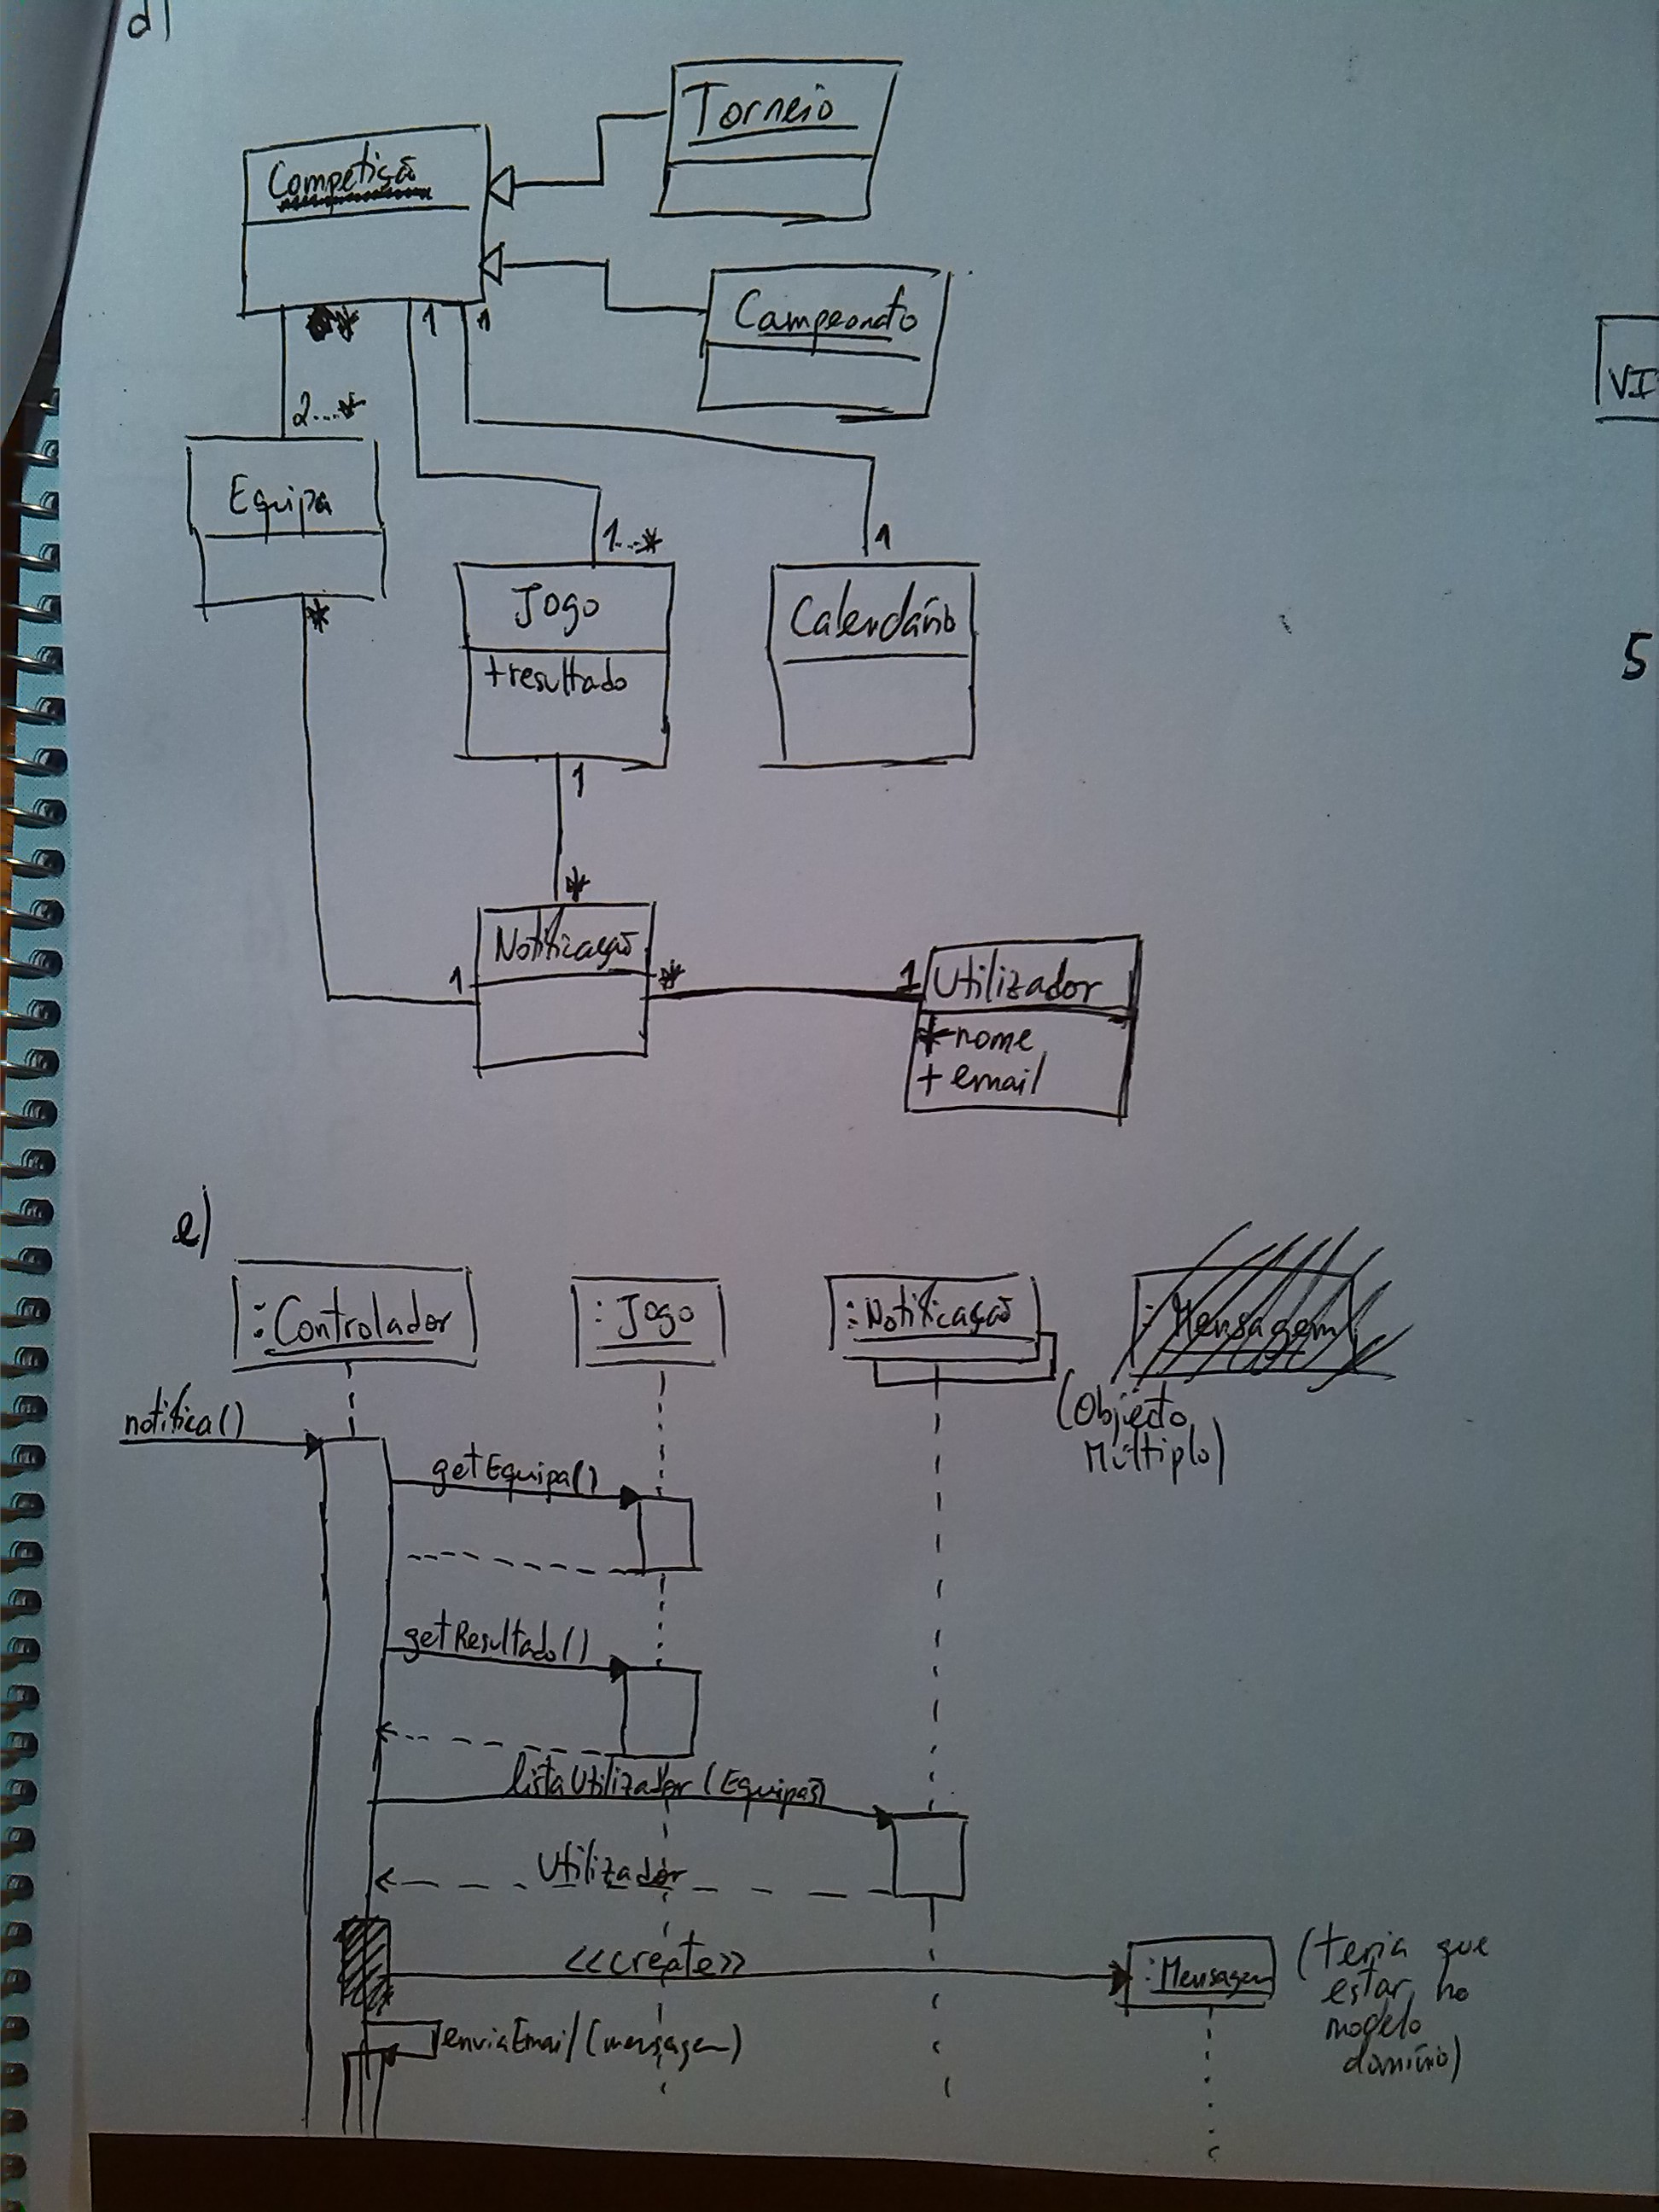 d)
Torneio
Competição
Campeonato
* 1 1
2...*
VI
Equipa
1...* 1
*
Jogo
Calendário
+resultado
5
1
*
Notificação
1 * 1
Utilizador
+nome
+email
e)
:Controlador
:Jogo
:Notificação
:Mensagem
(Objecto
Múltiplo)
notifica()
getEquipa()
getResultado()
listaUtilizador(Equipas)
Utilizador
<<create>>
:Mensagem
(teria que
estar no
modelo
domínio)
enviaEmail(mensagem)